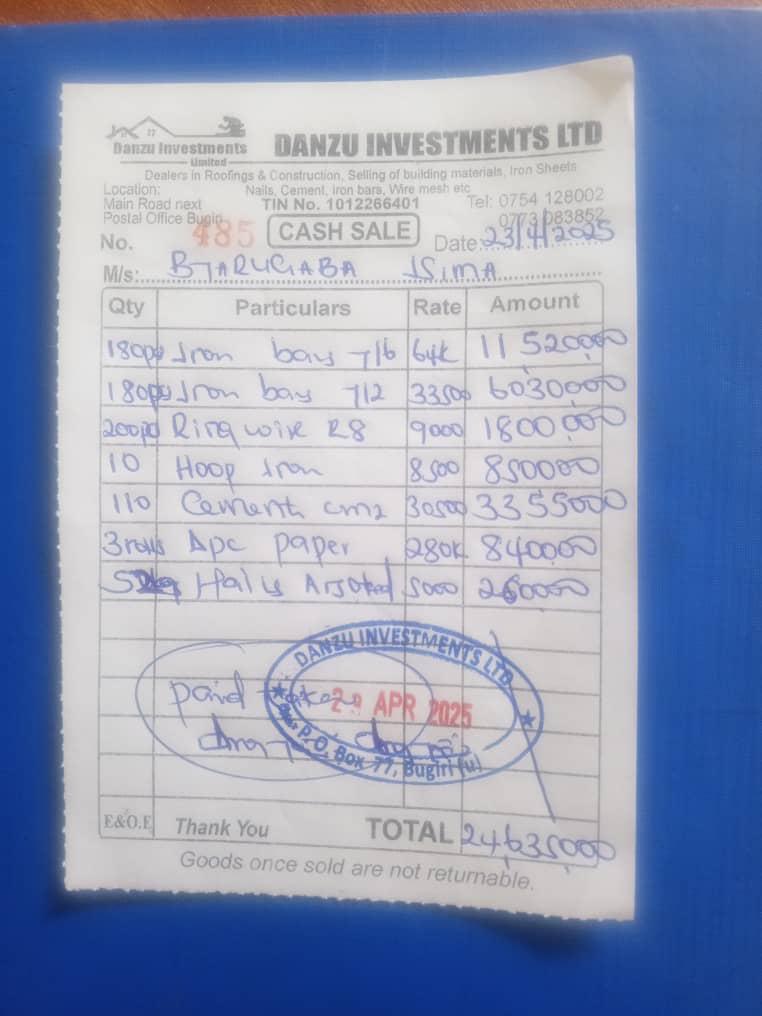 Danzu Investments
Limited
DANZU INVESTMENTS LTD
Dealers in Roofings & Construction, Selling of building materials, Iron Sheets
Nails, Cement, Iron bars, Wire mesh etc
Location:
Main Road next
Postal Office Bugiri
TIN No. 1012266401
Tel: 0754 128002
0773 083852
No. 485 CASH SALE Date: 23/4/2025
M/s: BTARUGABA ISIMA
Qty Particulars Rate Amount
180pc Iron bars Y16 64k 11520000
180pc Iron bars Y12 33500 6030000
200pc Ring wire R8 9000 1800000
10 Hoop Iron 8500 850000
110 Cement cm2 30500 3355000
3rolls Dpc paper 280k 840000
Nails Assorted 5000
DANZU INVESTMENTS LTD
paid
APR 2025
P.O. Box 77, Bugiri (u)
E&O.E Thank You TOTAL 24635000
Goods once sold are not returnable.